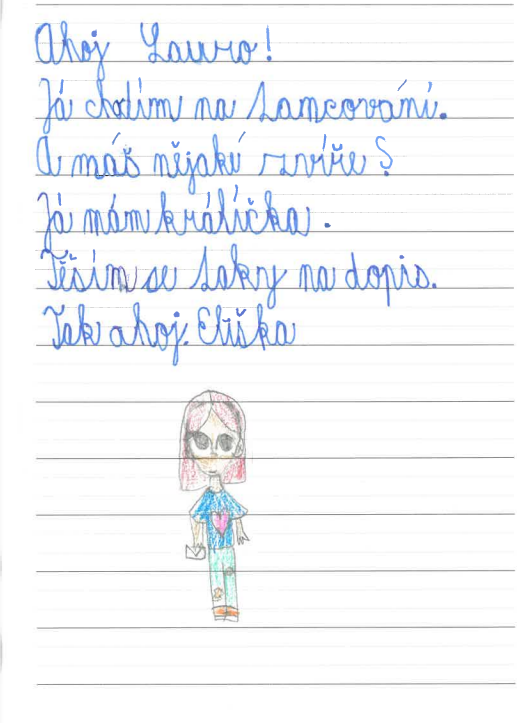 Ahoj Lauro!
Já chodím na tancování.
A máš nějaký zvíře?
Já mám králíčka.
Těším se taky na dopis.
Tak ahoj. Eliška